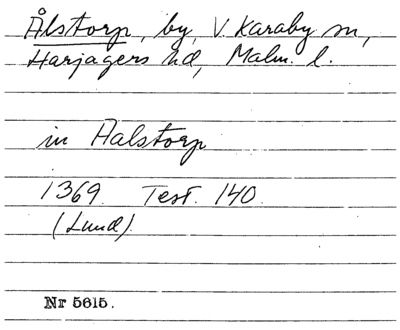 Ålstorp, by, V. Karaby sn,
Harjagers hd, Malm. l.
in Aalstorp
1369. Test. 140.
(Lund).
Nr 5615.